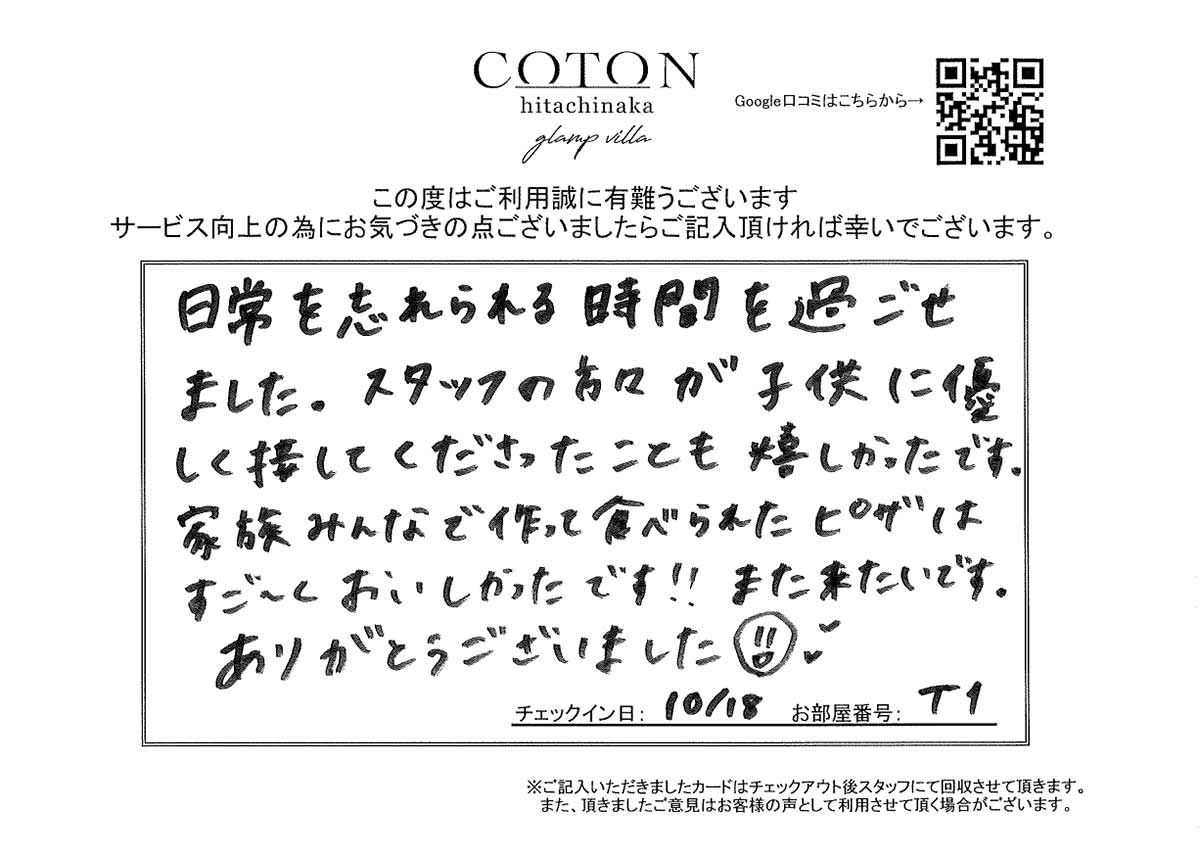 COTON
hitachinaka
glamp villa
Google口コミはこちらから→
この度はご利用誠に有難うございます
サービス向上の為にお気づきの点ございましたらご記入頂ければ幸いでございます。
日常を忘れられる時間を過ごせ
ました。スタッフの方々が子供に優
しく接してくださったことも嬉しかったです。
家族みんなで作って食べられたピザは
すご〜くおいしかったです!! また来たいです。
ありがとうございました
チェックイン日： 10/18 お部屋番号： T1
※ご記入いただきましたカードはチェックアウト後スタッフにて回収させて頂きます。
また、頂きましたご意見はお客様の声として利用させて頂く場合がございます。